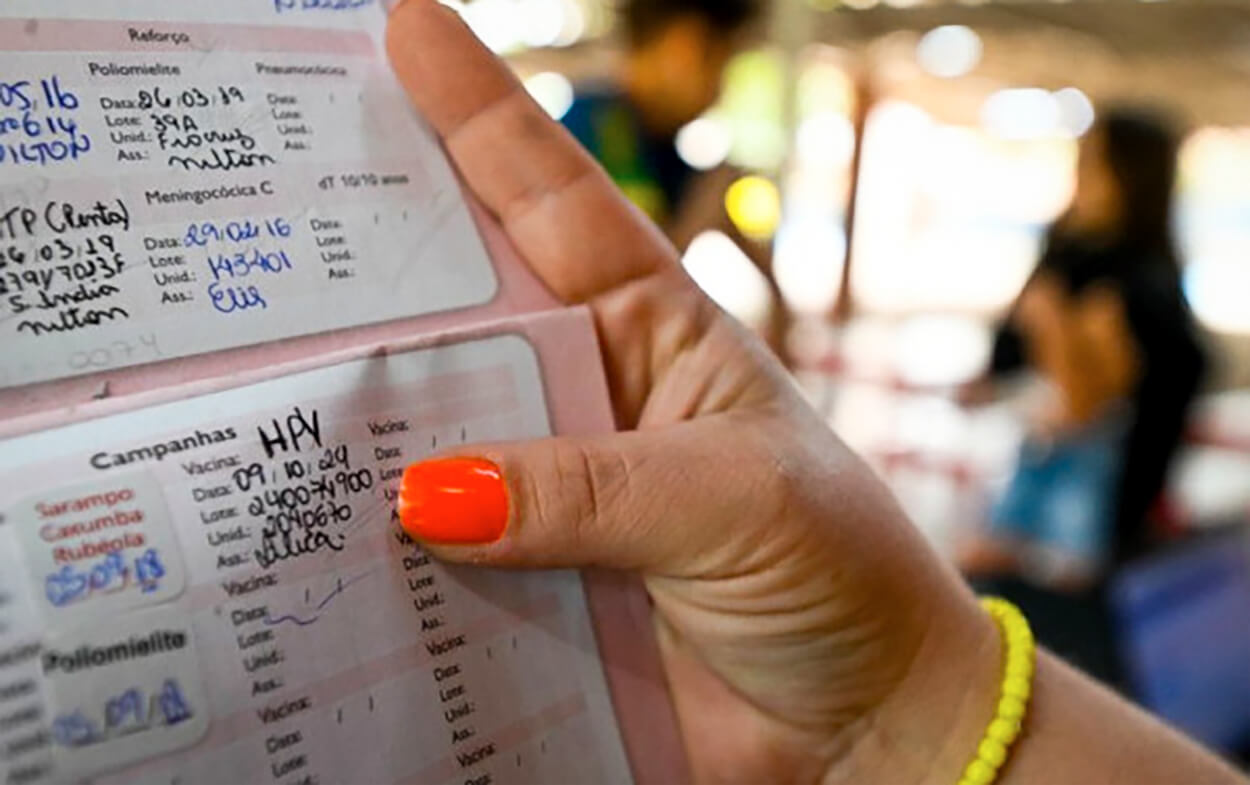 Reforço
Poliomielite
Data: 26/03/19
Lote: 39A
Unid.: Fiocruz
Ass.: nilton
Pneumocócica
Data: / /
Lote:
Unid.:
Ass.:
05/16
614
NILTON
TP (Penta)
6/03/19
S. India
nilton
Meningocócica C
Data: 29/02/16
Lote:
Unid.: 143401
Ass.: Elis
dT 10/10 anos
Data: / /
Lote:
Unid.:
Ass.:
0074
Campanhas
Sarampo
Caxumba
Rubéola
Poliomielite
Vacina: HPV
Data: 09/10/24
Lote:
Unid.: 2040670
Ass.:
Vacina:
Data: / /
Lote:
Unid.:
Ass.:
Vacina: / /
Data:
Lote:
Vacina:
Data: / /
Lote
Data:
Lote:
Unid.:
Ass.:
Vacina:
Data: / /
Lote:
Unid.:
Ass.:
Vacina:
Data: / /